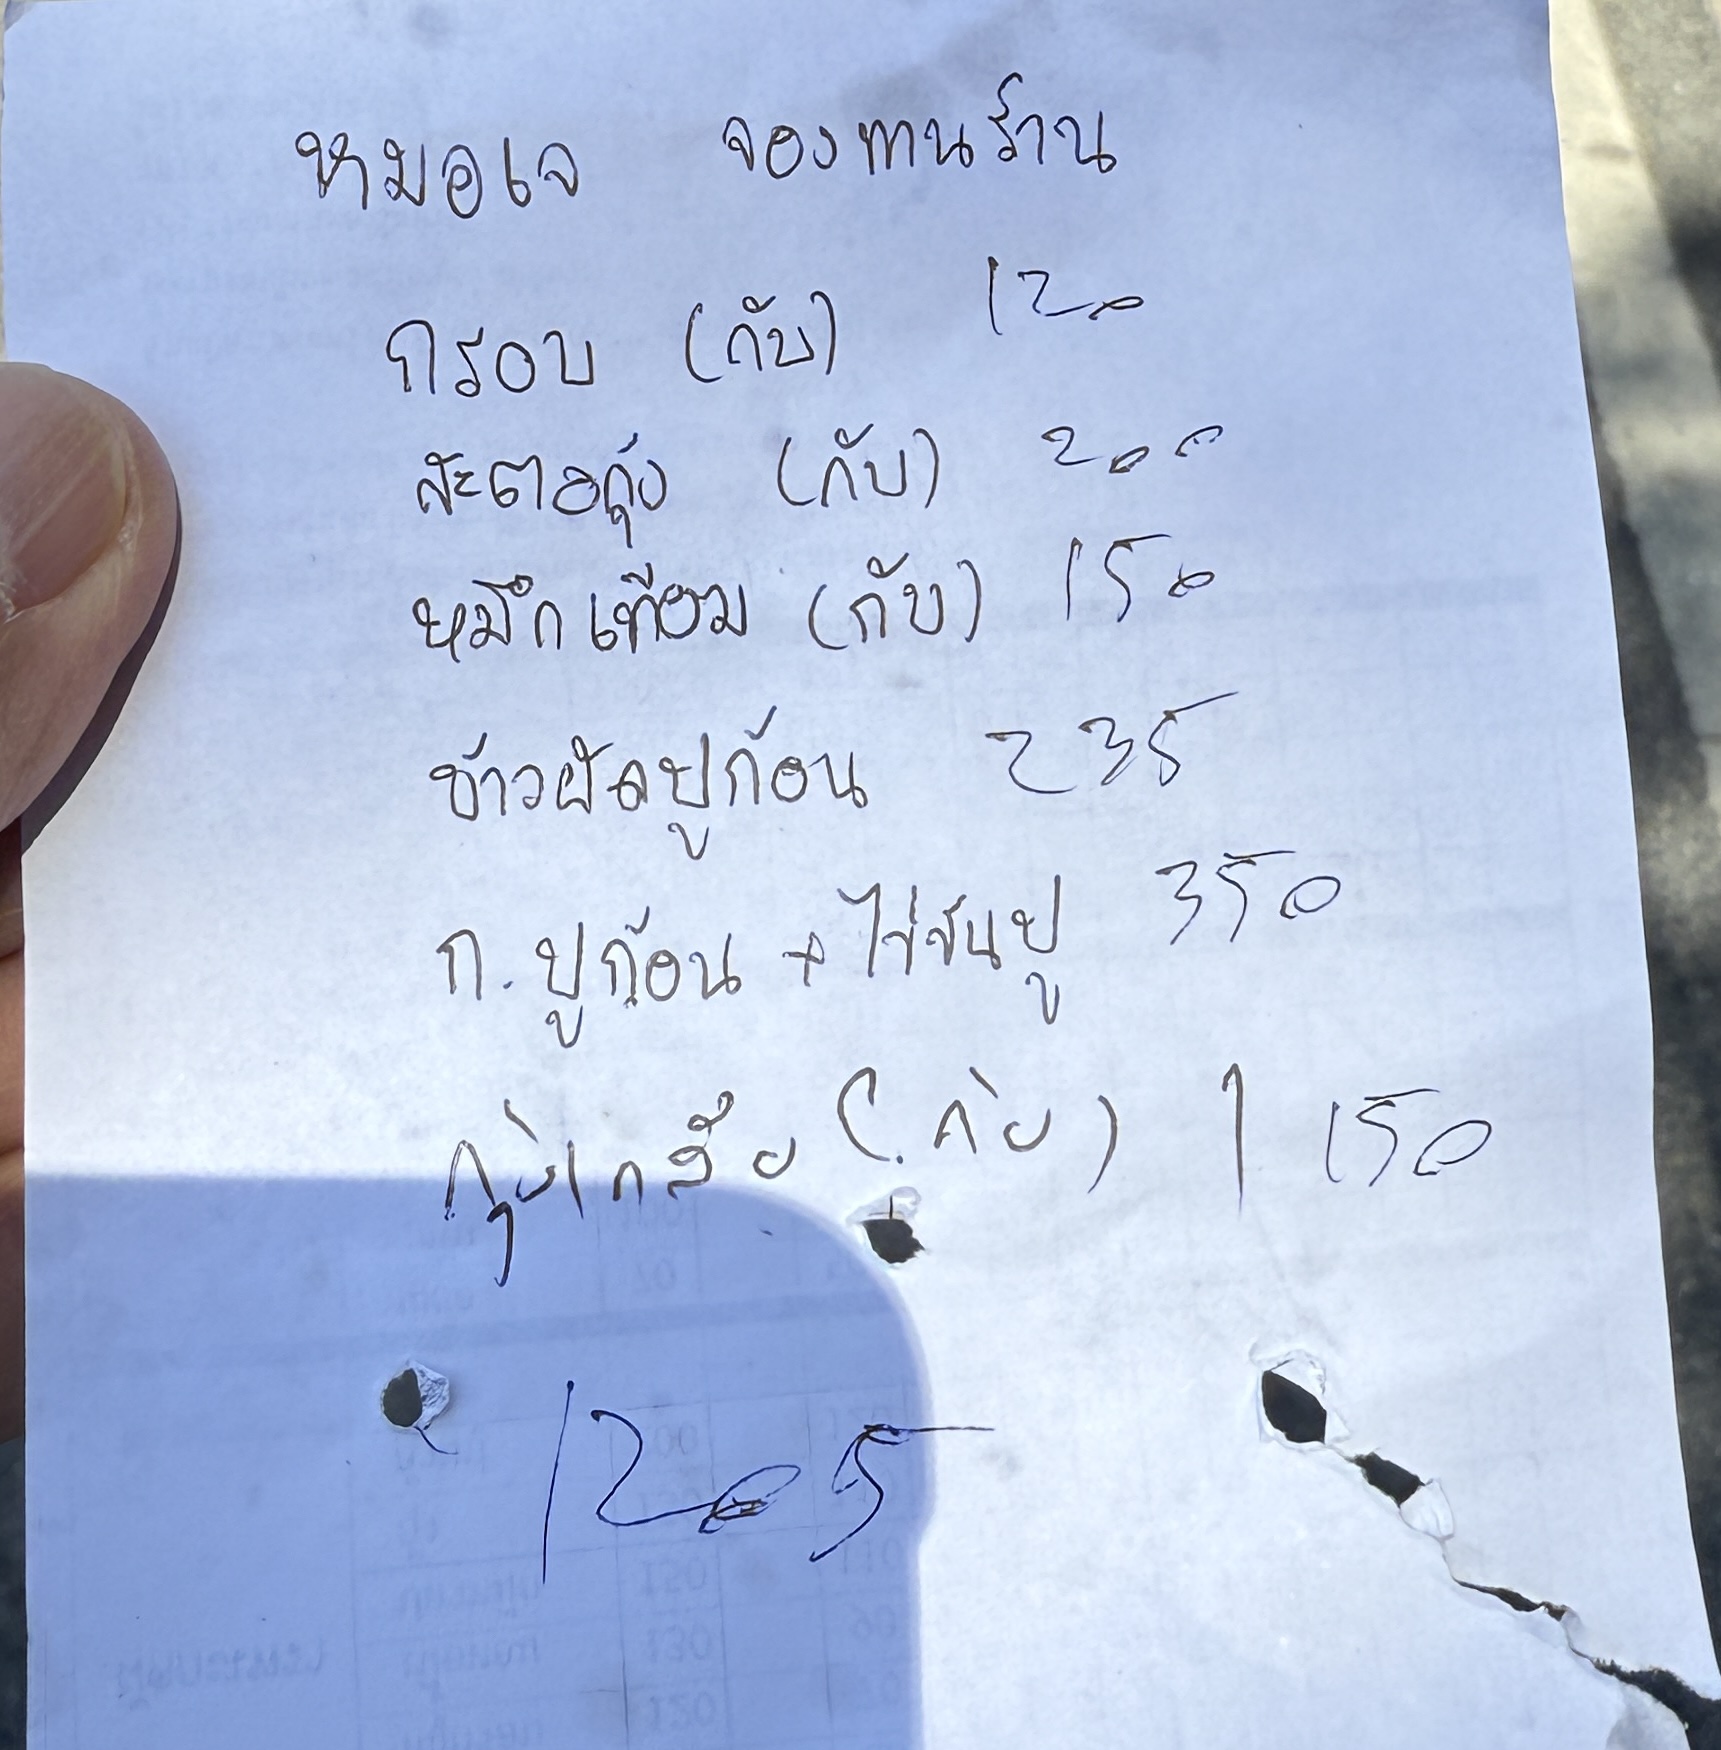 หมอเจ จองทานร้าน
กรอบ (กับ) 120
สะตอกุ้ง (กับ) 200
หมึกเทียม (กับ) 150
ข้าวผัดปูก้อน 235
ก. ปูก้อน + ไข่ข้นปู 350
กุ้งเกลือ (กับ) 1 150
1205